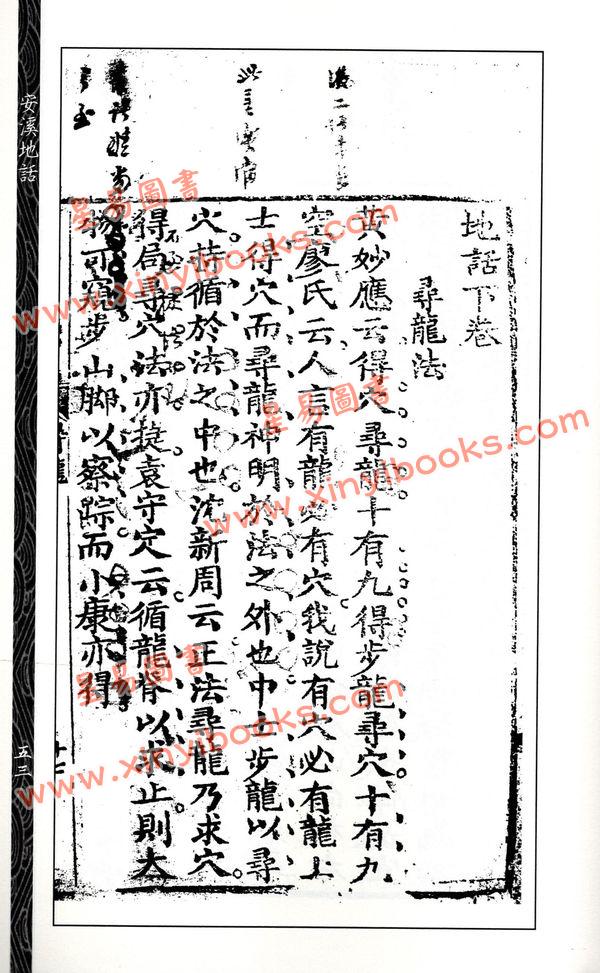 安溪地話
地話下卷
尋龍法
黃妙應云得穴尋龍十有九得步龍尋穴十有九
空廖氏云人言有龍必有穴我說有穴必有龍上
士得穴而尋龍神明於法之外也中士步龍以尋
穴甚循於法之中也沈新周云正法尋龍乃求穴
得局尋穴法亦捷袁守定云循龍脊以求止則大
物可窺步山脚以察踪而小康亦得
五三
星易圖書
www.xinyibooks.com
星易圖書
www.xinyibooks.com
星易圖書
www.xinyibooks.com